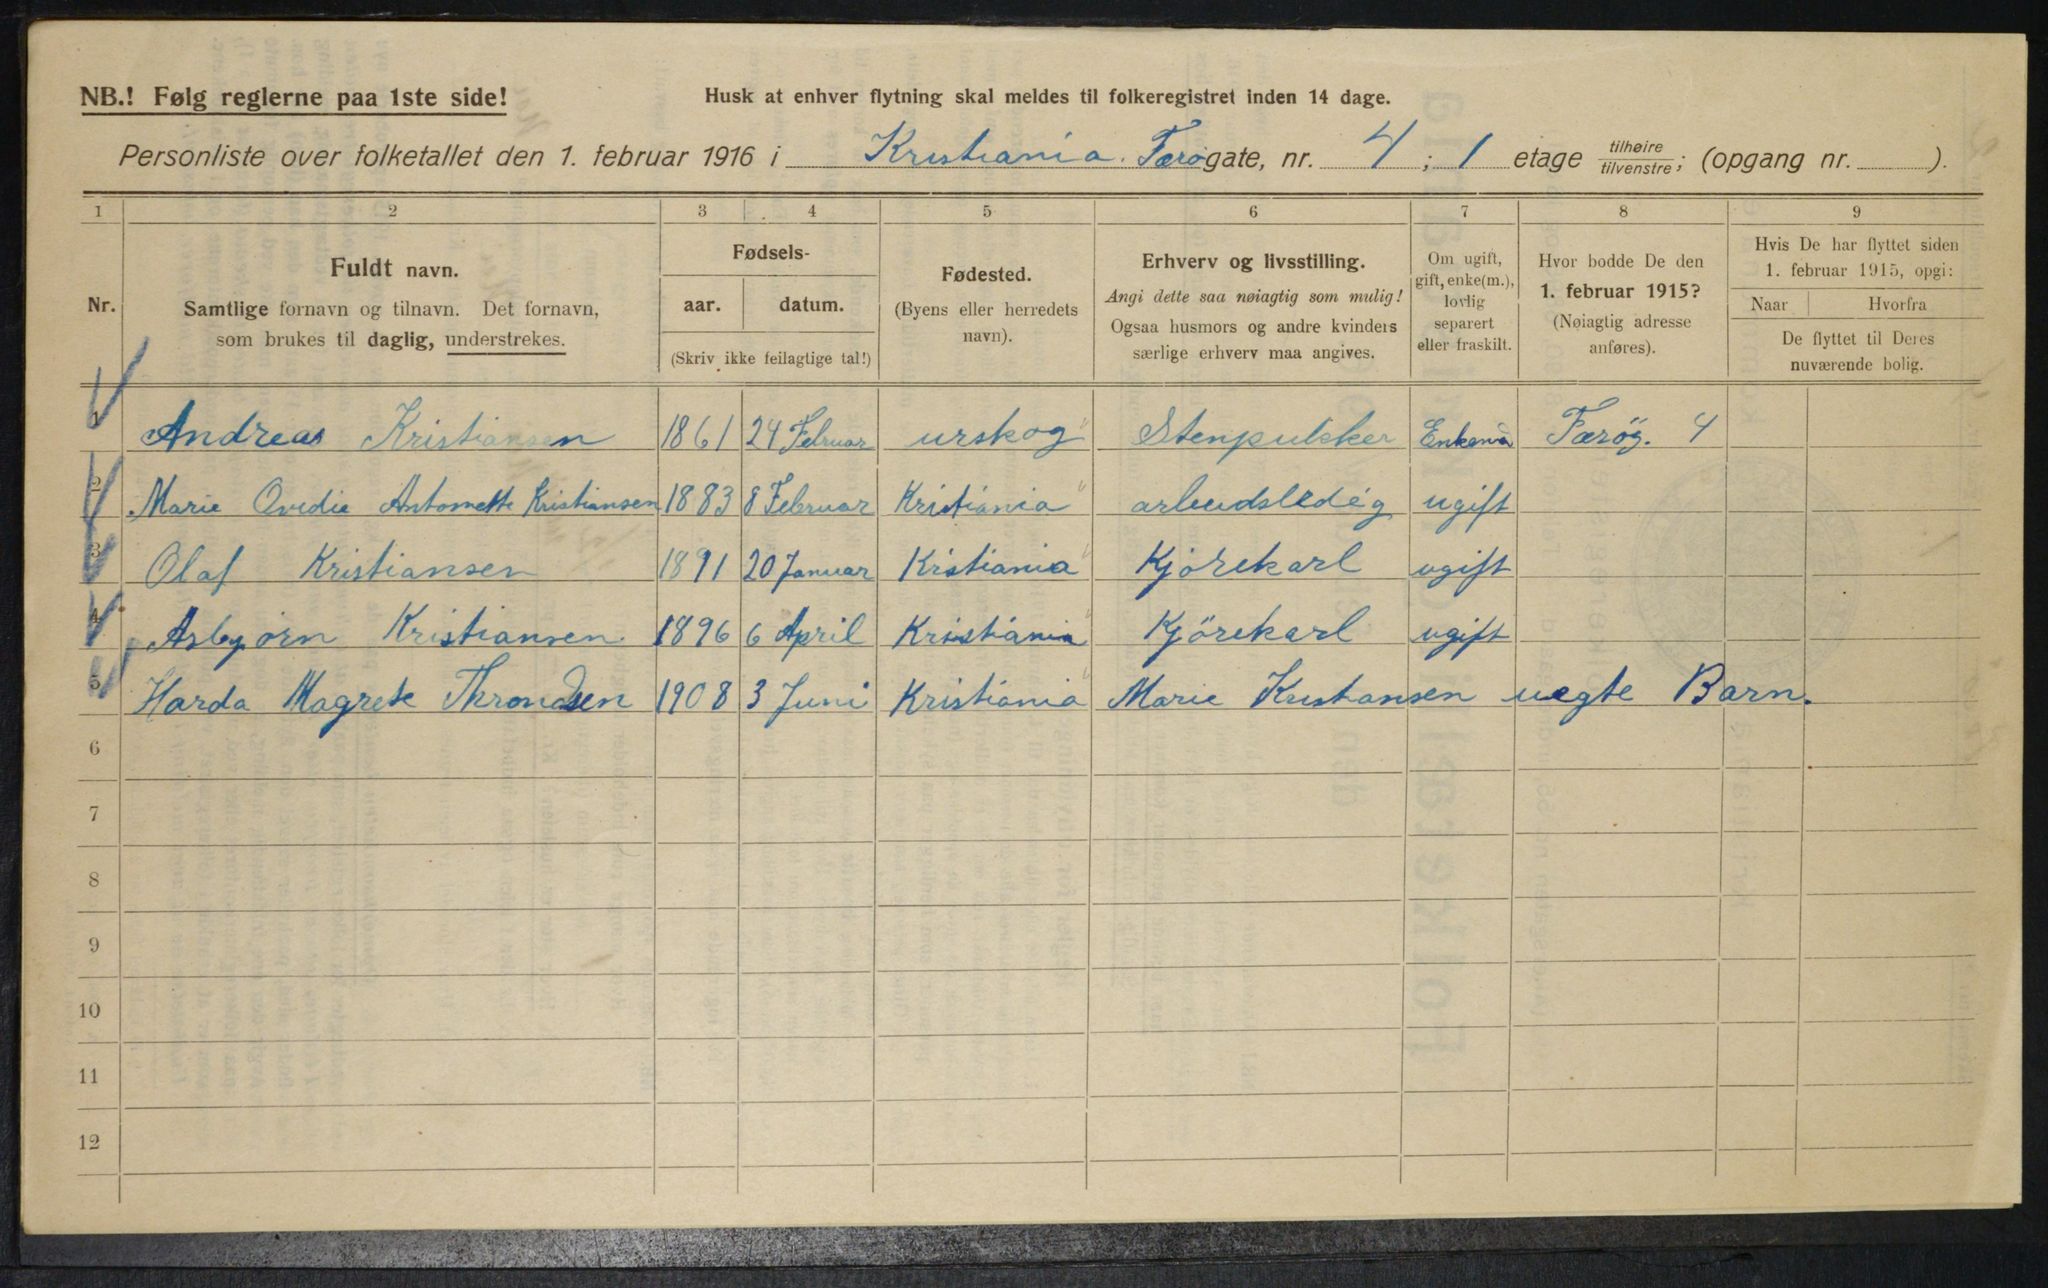 NB.! Følg reglerne paa 1ste side!
Husk at enhver flytning skal meldes til folkeregistret inden 14 dage.
Personliste over folketallet den 1. februar 1916 i Kristiania. Færøgate, nr. 4 ; 1 etage tilhøire/tilvenstre; (opgang nr. ).
1 2 3 4 5 6 7 8 9
Nr.
Fuldt navn.
Samtlige fornavn og tilnavn. Det fornavn,
som brukes til daglig, understrekes.
Fødsels-
aar. datum.
(Skriv ikke feilagtige tal!)
Fødested.
(Byens eller herredets
navn).
Erhverv og livsstilling.
Angi dette saa nøiagtig som mulig!
Ogsaa husmors og andre kvinders
særlige erhverv maa angives.
Om ugift,
gift, enke(m.),
lovlig
separert
eller fraskilt.
Hvor bodde De den
1. februar 1915?
(Nøiagtig adresse
anføres).
Hvis De har flyttet siden
1. februar 1915, opgi:
Naar Hvorfra
De flyttet til Deres
nuværende bolig.
1 Andreas Kristiansen 1861 24 Februar urskog Stenpukker Enkema Færøg. 4
2 Marie Ovedie Antonette Kristiansen 1883 8 Februar Kristiania arbeidsledig ugift
3 Olaf Kristiansen 1891 20 Januar Kristiania Kjörekarl ugift
4 Asbjørn Kristiansen 1896 6 April Kristiania Kjörekarl ugift
5 Harda Magrete Throndsen 1908 3 Juni Kristiania Marie Kristiansen uegte Barn.
6
7
8
9
10
11
12